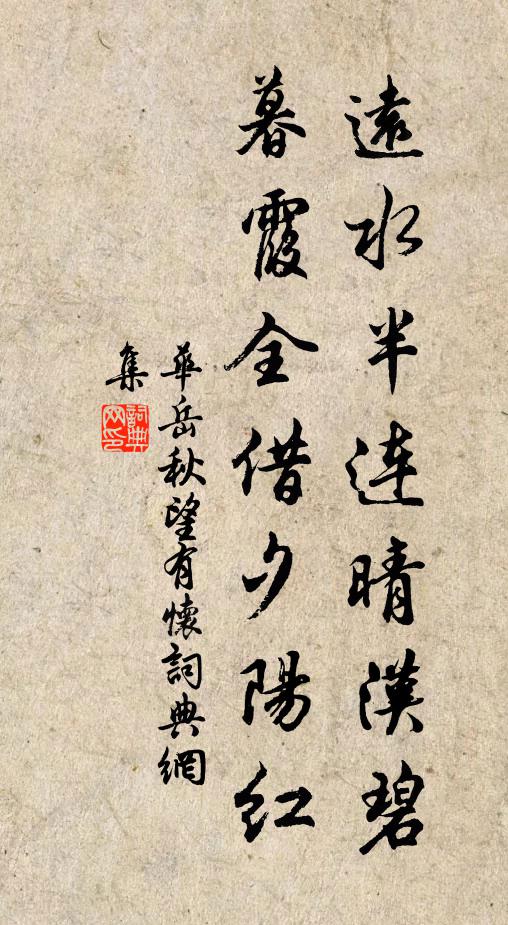 遠水半連晴漢碧
暮霞全借夕陽紅
華岳秋望有懷詞典網
集
詞典
网印